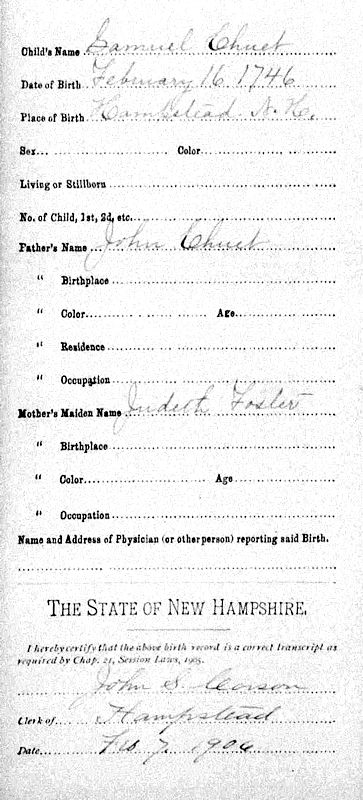 Child's Name Samuel Chuet
Date of Birth February 16 1746
Place of Birth Hampstead N. H.
Sex Color
Living or Stillborn
No. of Child, 1st, 2d, etc.
Father's Name John Chuet
" Birthplace
" Color Age
" Residence
" Occupation
Mother's Maiden Name Judeth Foster
" Birthplace
" Color Age
" Occupation
Name and Address of Physician (or other person) reporting said Birth.
THE STATE OF NEW HAMPSHIRE.
I hereby certify that the above birth record is a correct transcript as
required by Chap. 21, Session Laws, 1905.
John S. Corson
Clerk of Hampstead
Date Feb 7 1906